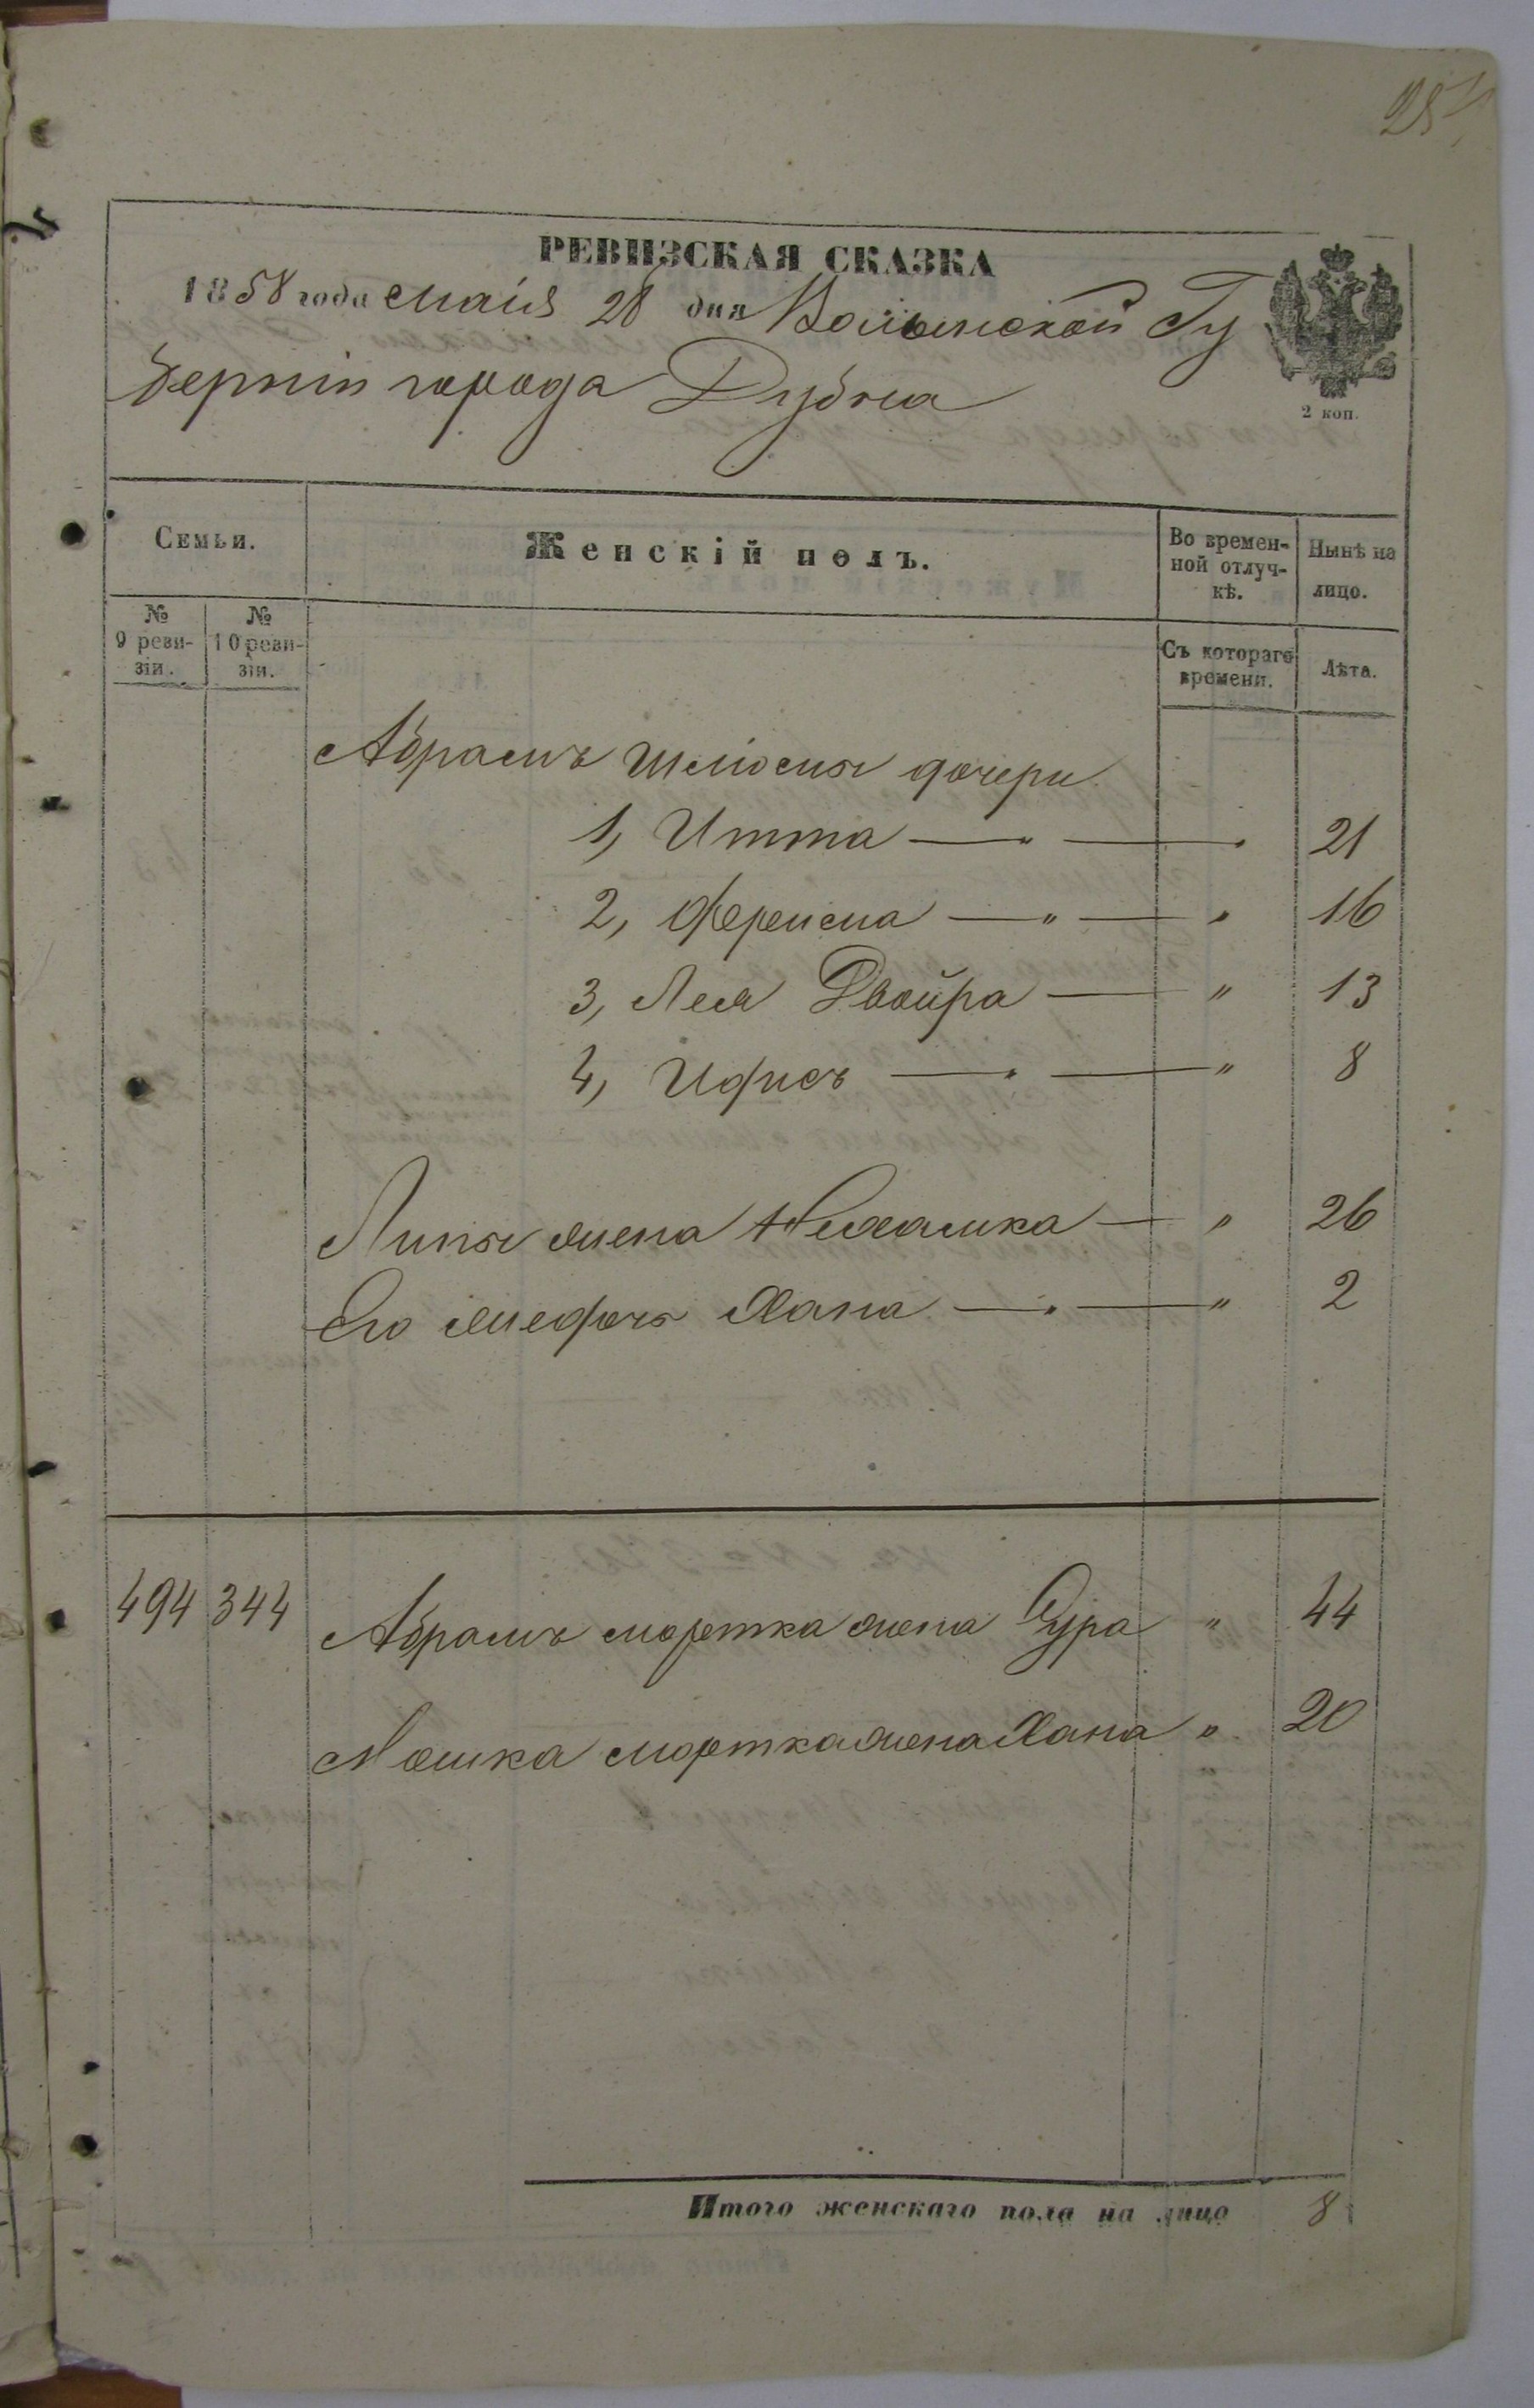 РЕВИЗСКАЯ СКАЗКА
1858 года Маія 28 дня Волынской Гу
берніи города Дубна
2 коп.
Семьи.
Женскій полъ.
Во времен-
ной отлуч-
кѣ.
Нынѣ на
лицо.
№
9 реви-
зіи.
№
10 реви-
зіи.
Съ котораго
времени.
Лѣта.
Абрамъ Шліомы дочери
1, Итта — " — " 21
2, Фрейма — " — " 16
3, Лея Двойра — " 13
4, — " — " 8
Липы жена Нехамка — " 26
Его дочь Хана — " — " 2
494 344 Абрамъ Мортка жена Сура " 44
Мошка Мортка жена Хана " 20
Итого женскаго пола на лицо 8